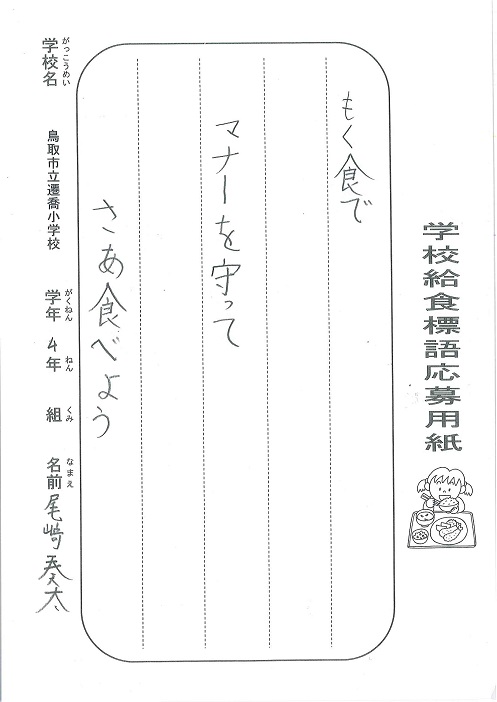 学校給食標語応募用紙
もく食で
マナーを守って
さあ食べよう
がっこうめい がくねん ねん くみ なまえ
学校名 鳥取市立遷喬小学校 学年 4年 組 名前 尾﨑 奏太